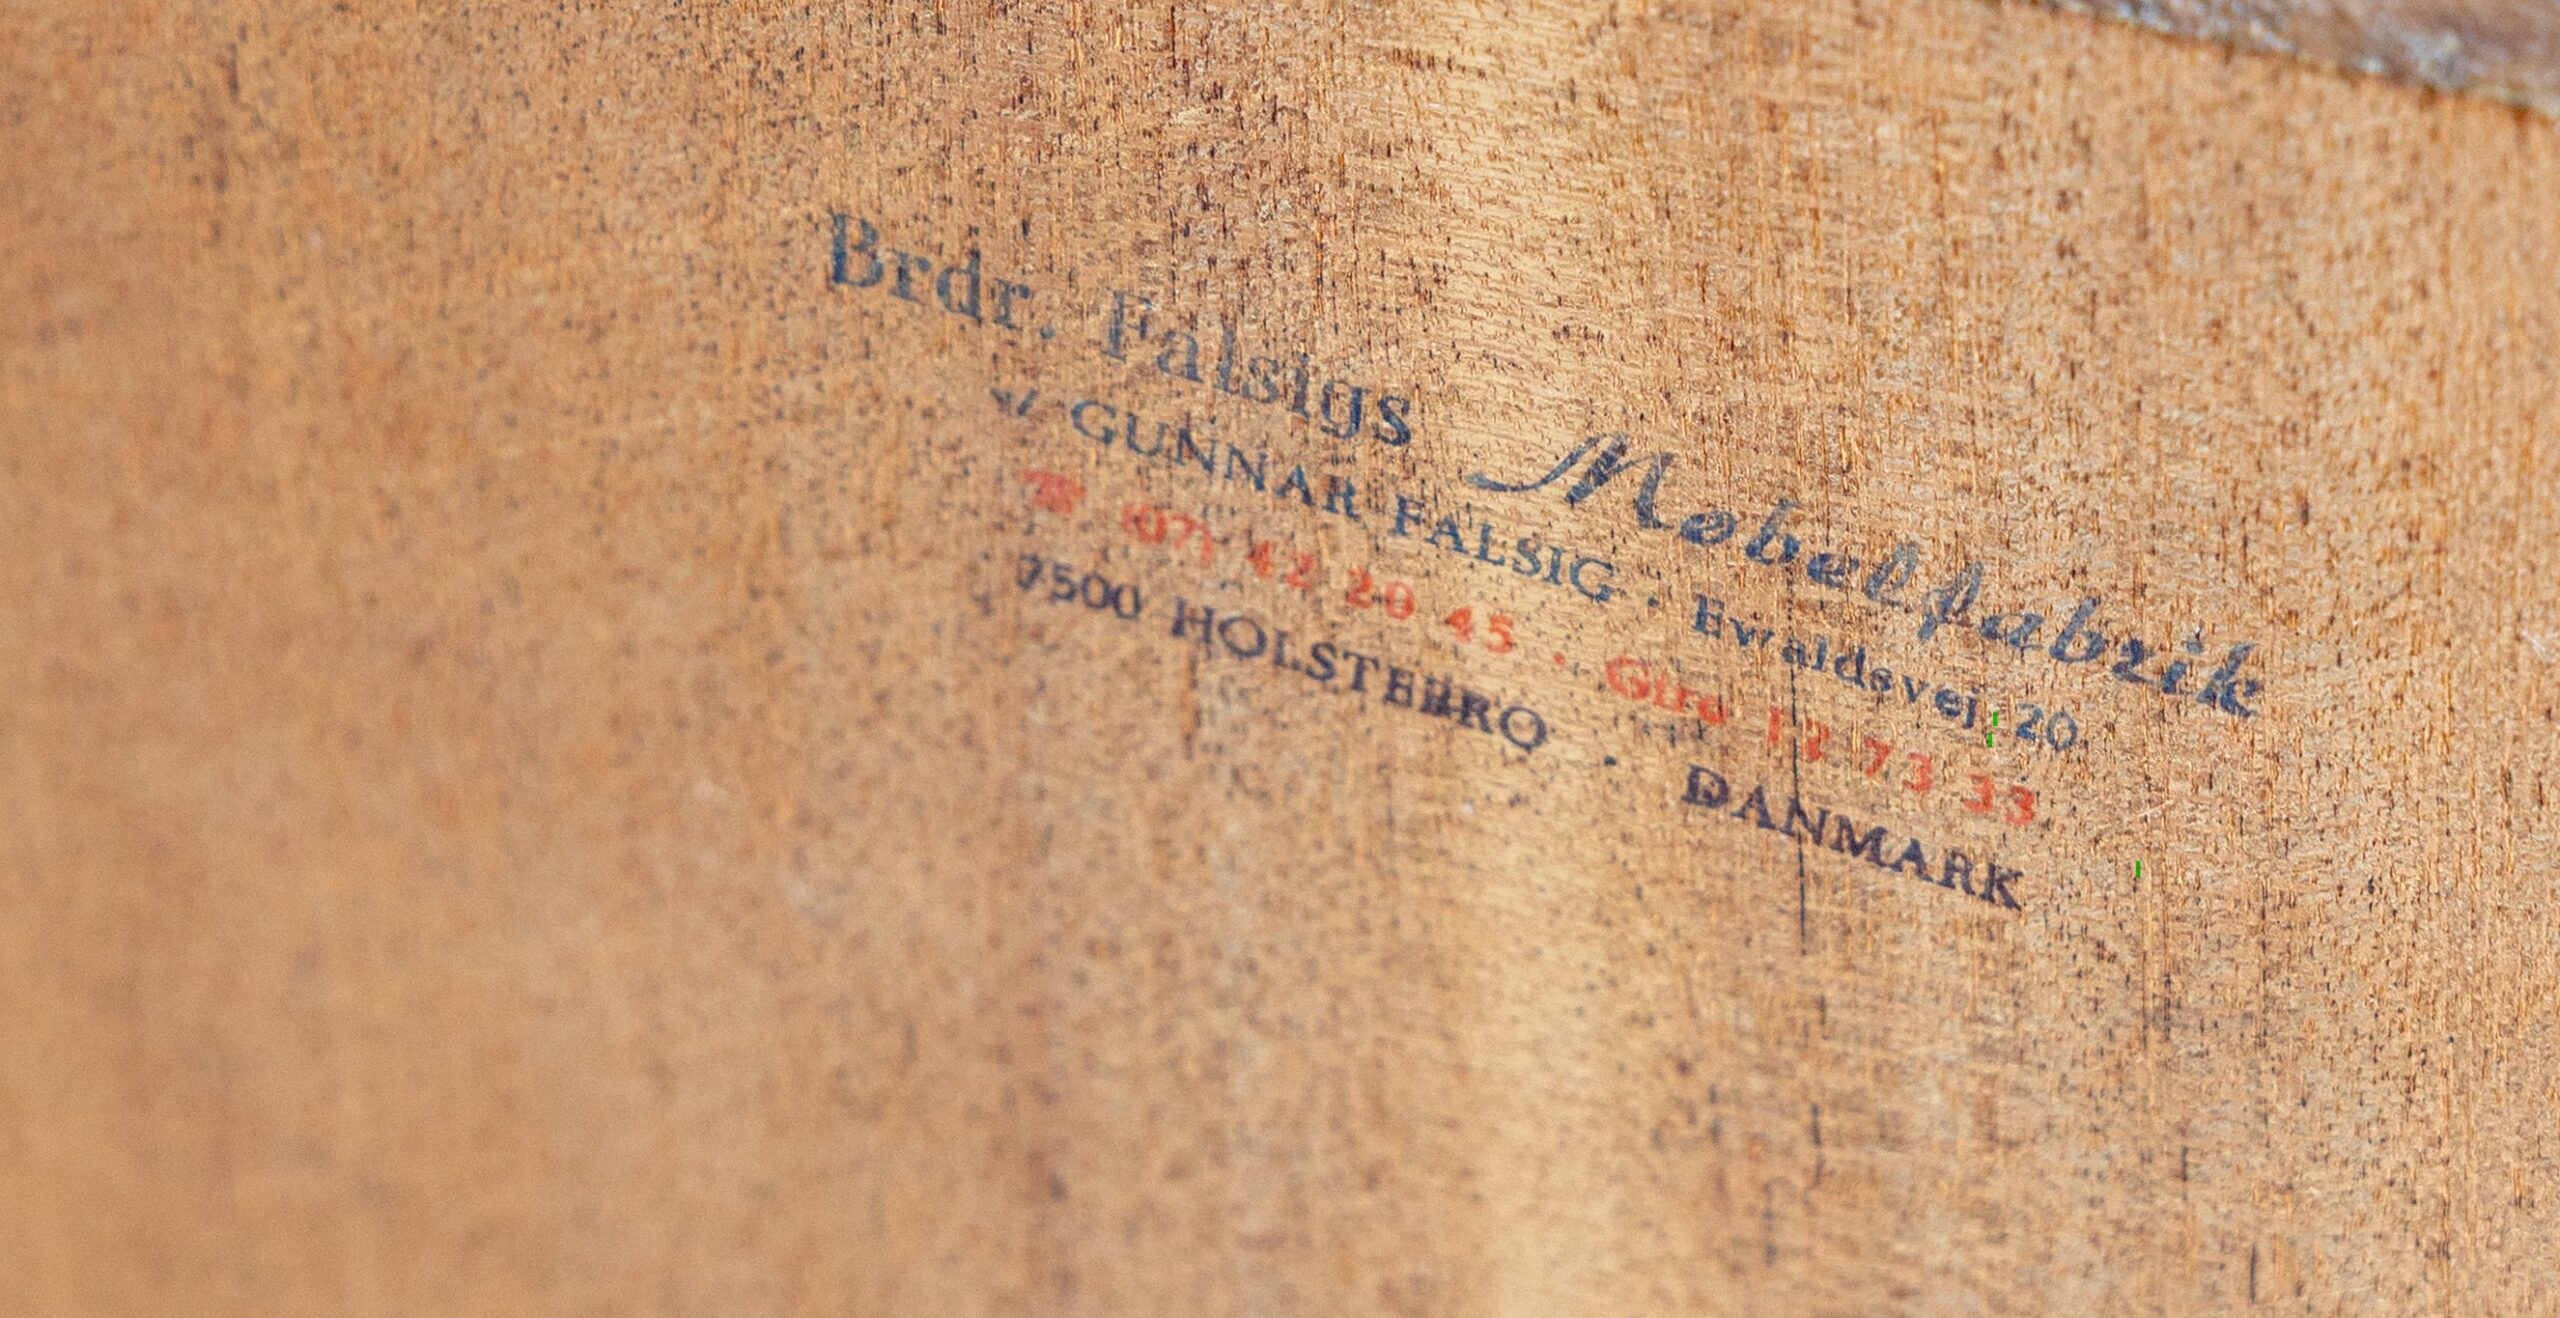 Brdr. Falsigs Møbelfabrik
v/ GUNNAR FALSIG · Ewaldsvej 20
☎ (07) 42 20 45 · Giro 12 73 33
7500 HOLSTEBRO · DANMARK